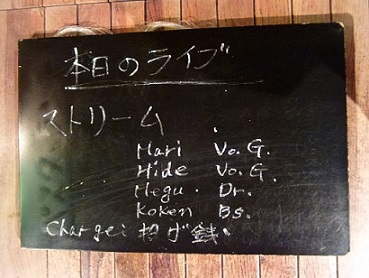 本日のライブ
ストリーム
Mari Vo. G.
Hide Vo. G.
Megu. Dr.
Koken Bs.
Charge: 投げ銭